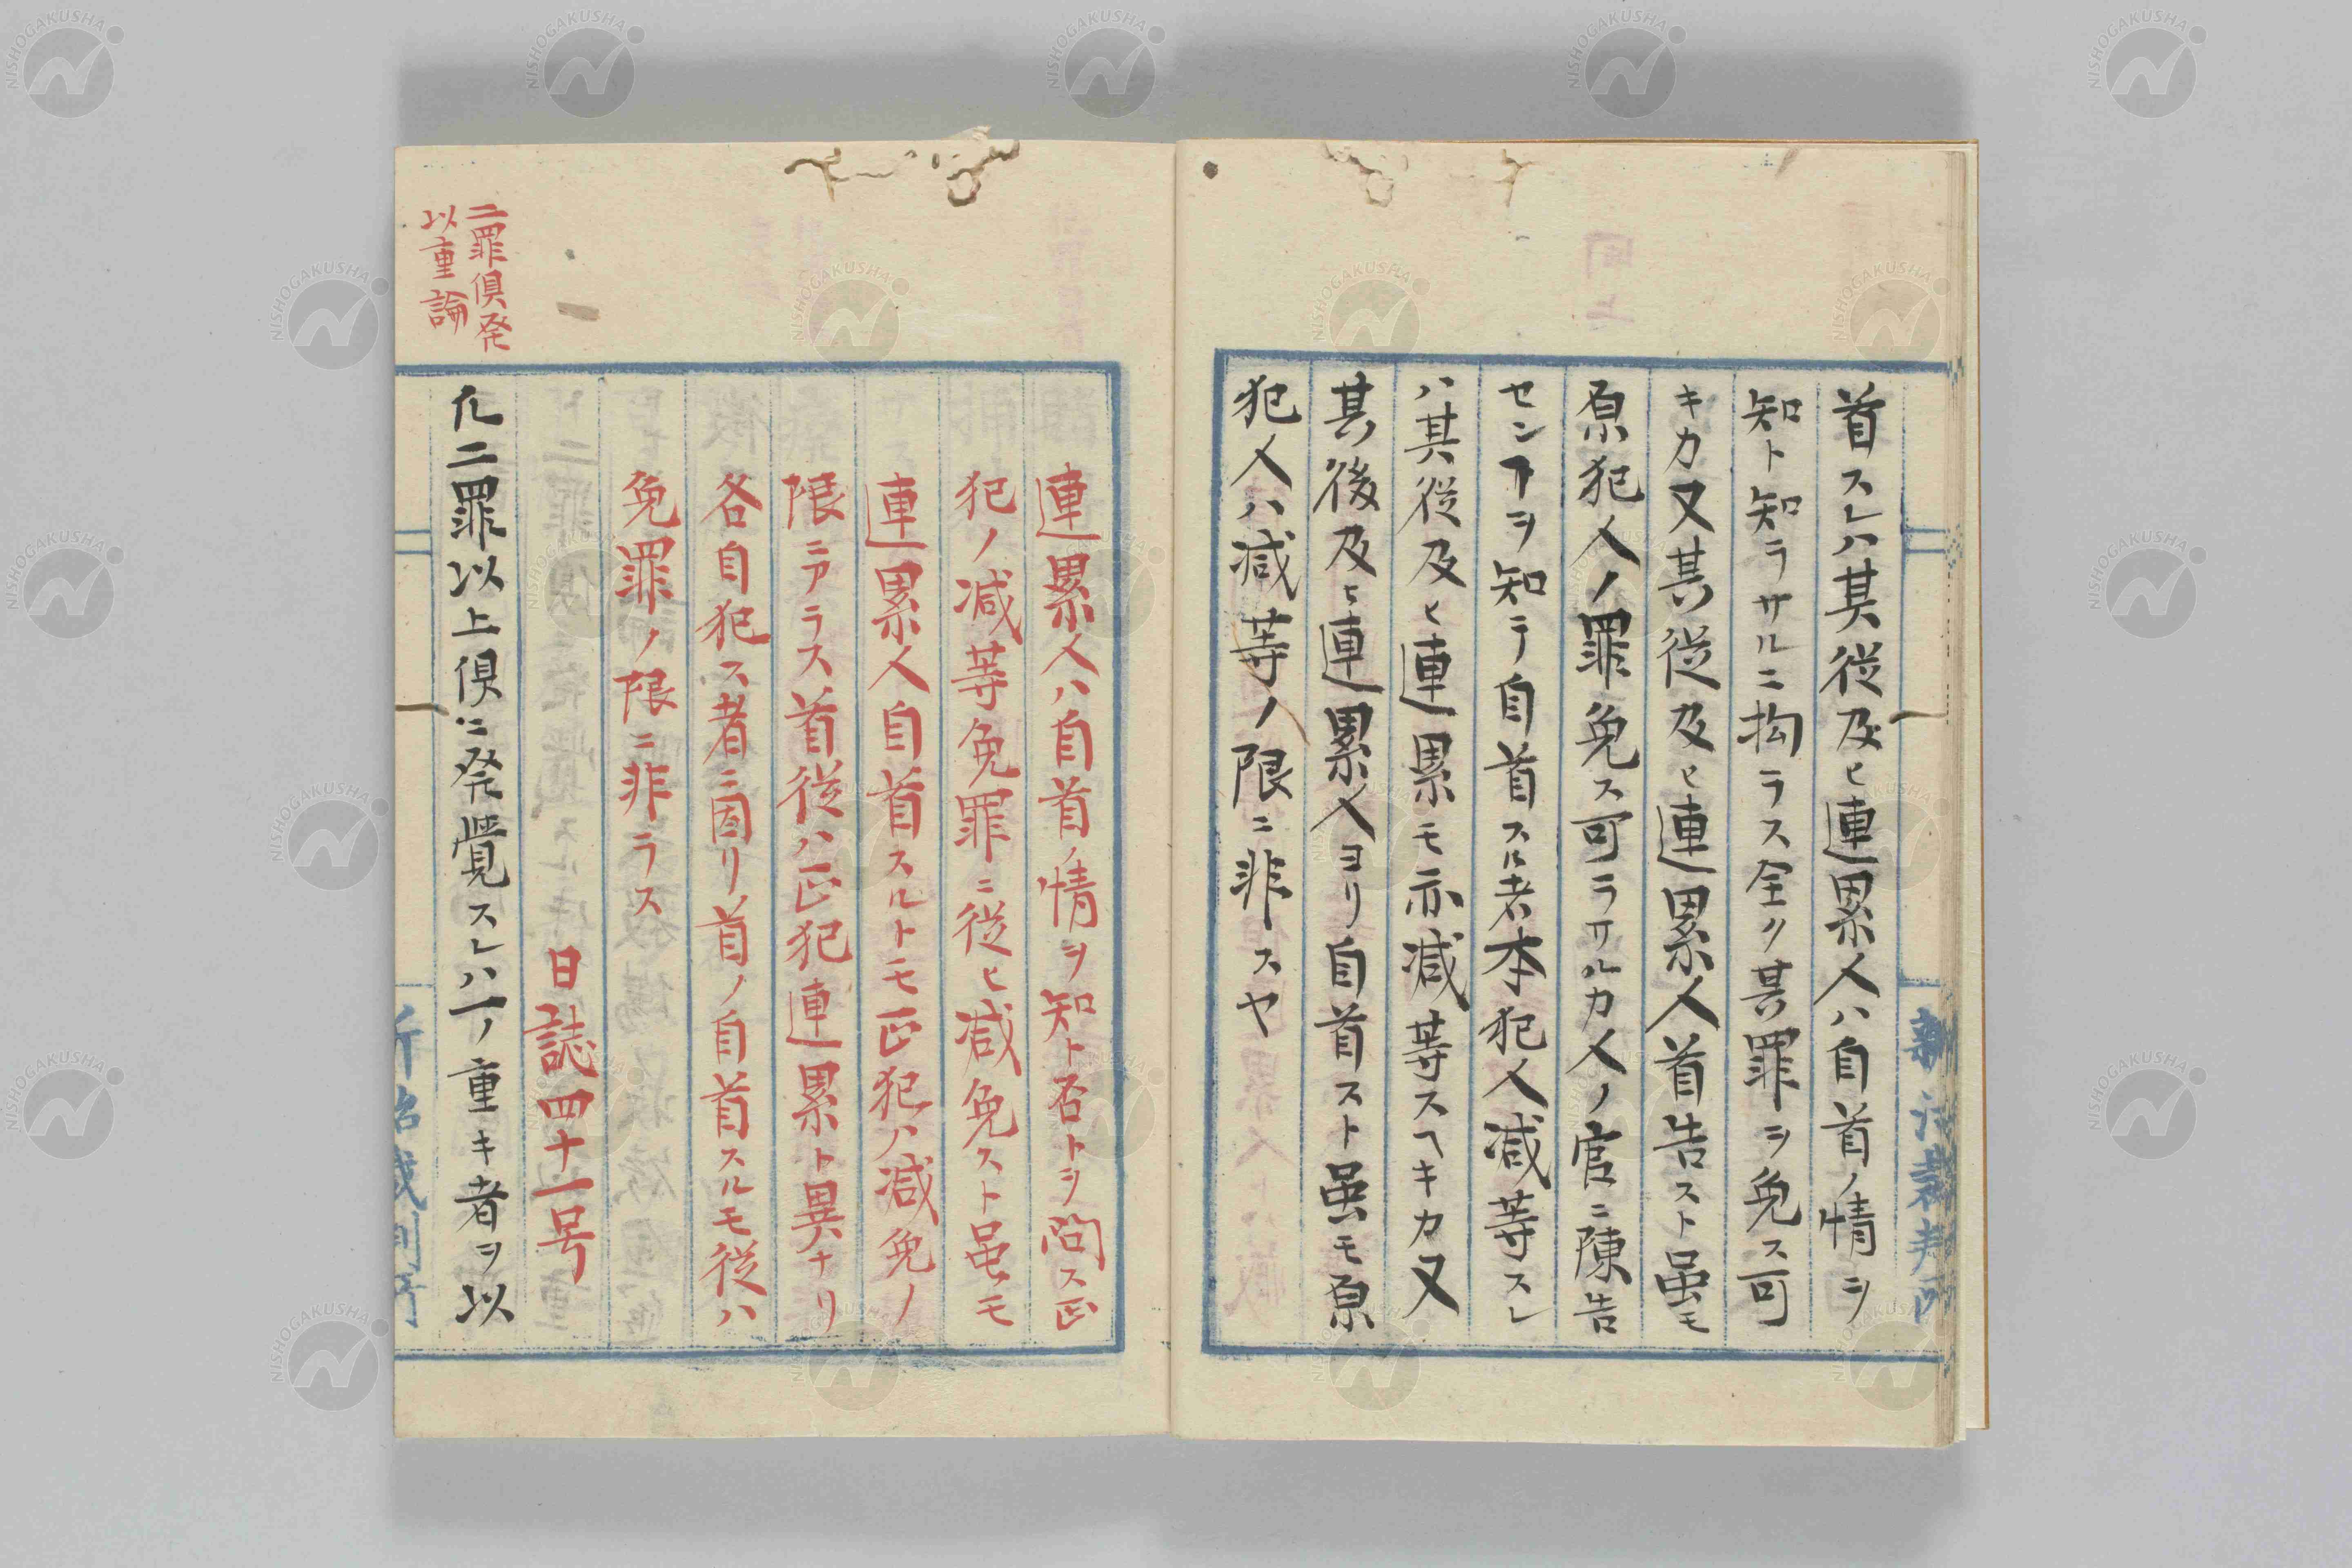 首スレハ其従及ヒ連累人ハ自首ノ情ヲ
知ト知ラサルニ拘ラス全ク其罪ヲ免ス可
キカ又其従及ヒ連累人首告スト虽モ
原犯人ノ罪免ス可ラサルカ人ノ官ニ陳告
センヿヲ知テ自首スル者本犯人減等スレ
ハ其従及ヒ連累モ亦減等スヘキカ又
其後及ヒ連累人ヨリ自首スト虽モ原
犯人ハ減等ノ限ニ非スヤ
連累人ハ自首ノ情ヲ知ト否トヲ問ス正
犯ノ減等免罪ニ従ヒ減免スト虽モ
連累人自首スルトモ正犯ハ減免ノ
限ニアラス首従ハ正犯連累ト異ナリ
各自犯ス者ニ因リ首ノ自首スルモ従ハ
免罪ノ限ニ非ラス
日誌四十一号
二罪俱発
以重論
凢二罪以上俱ニ発覚スレハ一ノ重キ者ヲ以
新治裁判所
新治裁判所
NISHOGAKUSHA